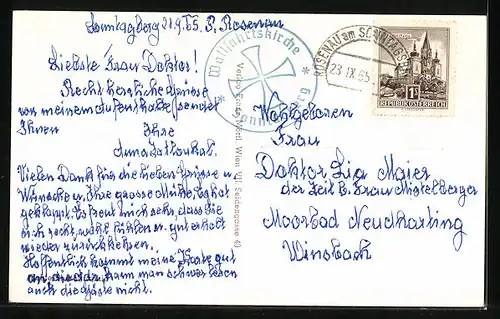 Sonntagberg 21.9.65. P. Rosenau
Liebste Frau Doktor!
Recht herzliche Grüsse
von meinem Aufenthalte sendet
Ihnen
Ihre
Anna
Vielen Dank für die lieben Grüsse u.
Wünsche u. Ihre grosse Mühe. Es hat
geklappt. Es freut mich sehr, dass Sie
sich recht wohl fühlen u. gut erholt
wieder zurückkehren.
Hoffentlich kommt meine Karte gut
an die da, kann man schwer lesen
auch die Gäste nicht.
Wallfahrtskirche
* Sonntagberg *
Wien VII Seidengasse
ROSENAU am SONNTAGBERG
23.IX.65
1S
REPUBLIK ÖSTERREICH
Wohlgeboren
Frau
Doktor Lia Maier
der Zeit b. Frau Mistelberger
Moorbad Neydharting
Wimsbach